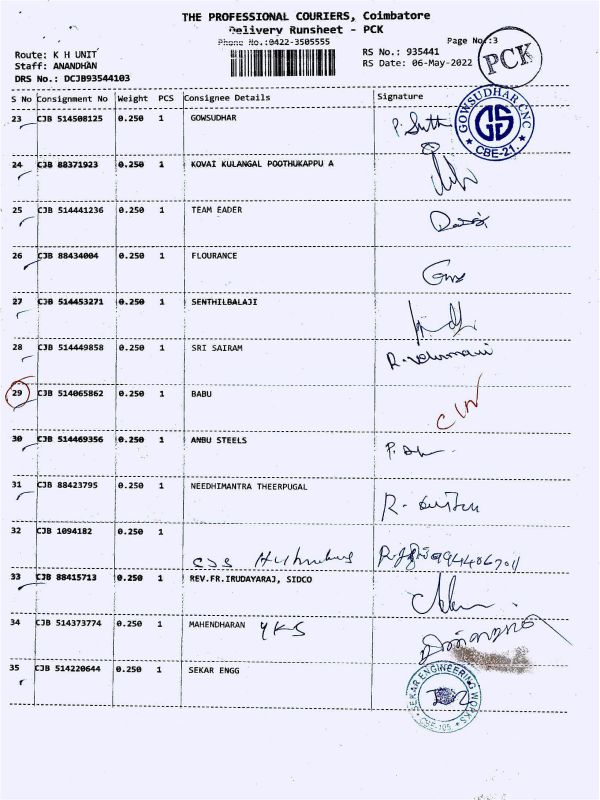 THE PROFESSIONAL COURIERS, Coimbatore
Delivery Runsheet - PCK
Phone No.:0422-3505555
Page No.:3
Route: K H UNIT
Staff: ANANDHAN
DRS No.: DCJB93544103
RS No.: 935441
RS Date: 06-May-2022
PCK
S No Consignment No Weight PCS Consignee Details Signature
23 CJB 514508125 0.250 1 GOWSUDHAR
GOWSUDHAR CNC
GS
CBE-21.
24 CJB 88371923 0.250 1 KOVAI KULANGAL POOTHUKAPPU A
25 CJB 514441236 0.250 1 TEAM EADER
26 CJB 88434004 0.250 1 FLOURANCE
27 CJB 514453271 0.250 1 SENTHILBALAJI
28 CJB 514449858 0.250 1 SRI SAIRAM
29 CJB 514065862 0.250 1 BABU
30 CJB 514469356 0.250 1 ANBU STEELS
31 CJB 88423795 0.250 1 NEEDHIMANTRA THEERPUGAL
32 CJB 1094182 0.250 1
33 CJB 88415713 0.250 1 REV.FR.IRUDAYARAJ, SIDCO
34 CJB 514373774 0.250 1 MAHENDHARAN YKS
35 CJB 514220644 0.250 1 SEKAR ENGG
SEKAR ENGINEERING WORKS
CBE-105